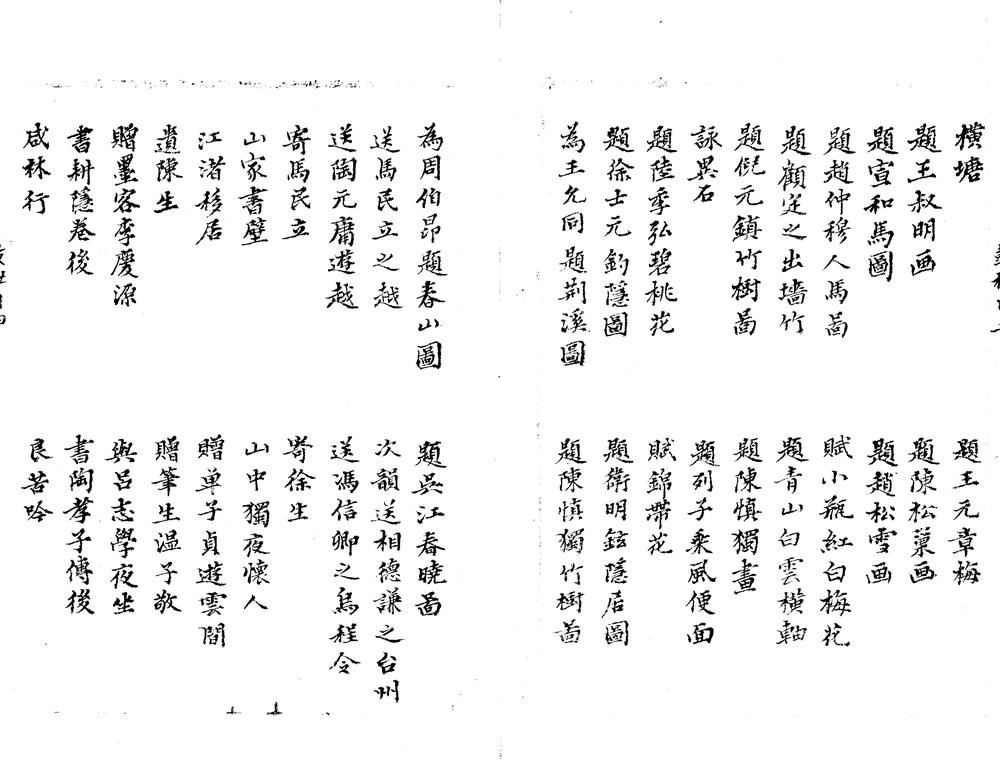 橫塘
題王元章梅
題王叔明画
題陳松藁画
題宣和馬圖
題趙松雪画
題趙仲穆人馬啚
賦小瓶紅白梅花
題顧定之出墻竹
題青山白雲橫軸
題倪元鎮竹樹啚
題陳慎獨畫
詠異石
題列子乘風便面
題陸季弘碧桃花
賦錦帶花
題徐士元釣隱圖
題衛明鉉隱居圖
為王允同題荆溪圖
題陳慎獨竹樹啚
為周伯昂題春山圖
題吳江春曉啚
送馬民立之越
次韻送相德謙之台州
送陶元庸遊越
送馮信卿之烏程令
寄馬民立
寄徐生
山家書壁
山中獨夜懷人
江渚移居
贈单子貞遊雲間
遺陳生
贈筆生温子敬
贈墨客李慶源
與呂志學夜坐
書耕隱卷後
書陶孝子傳後
咸林行
良苦吟